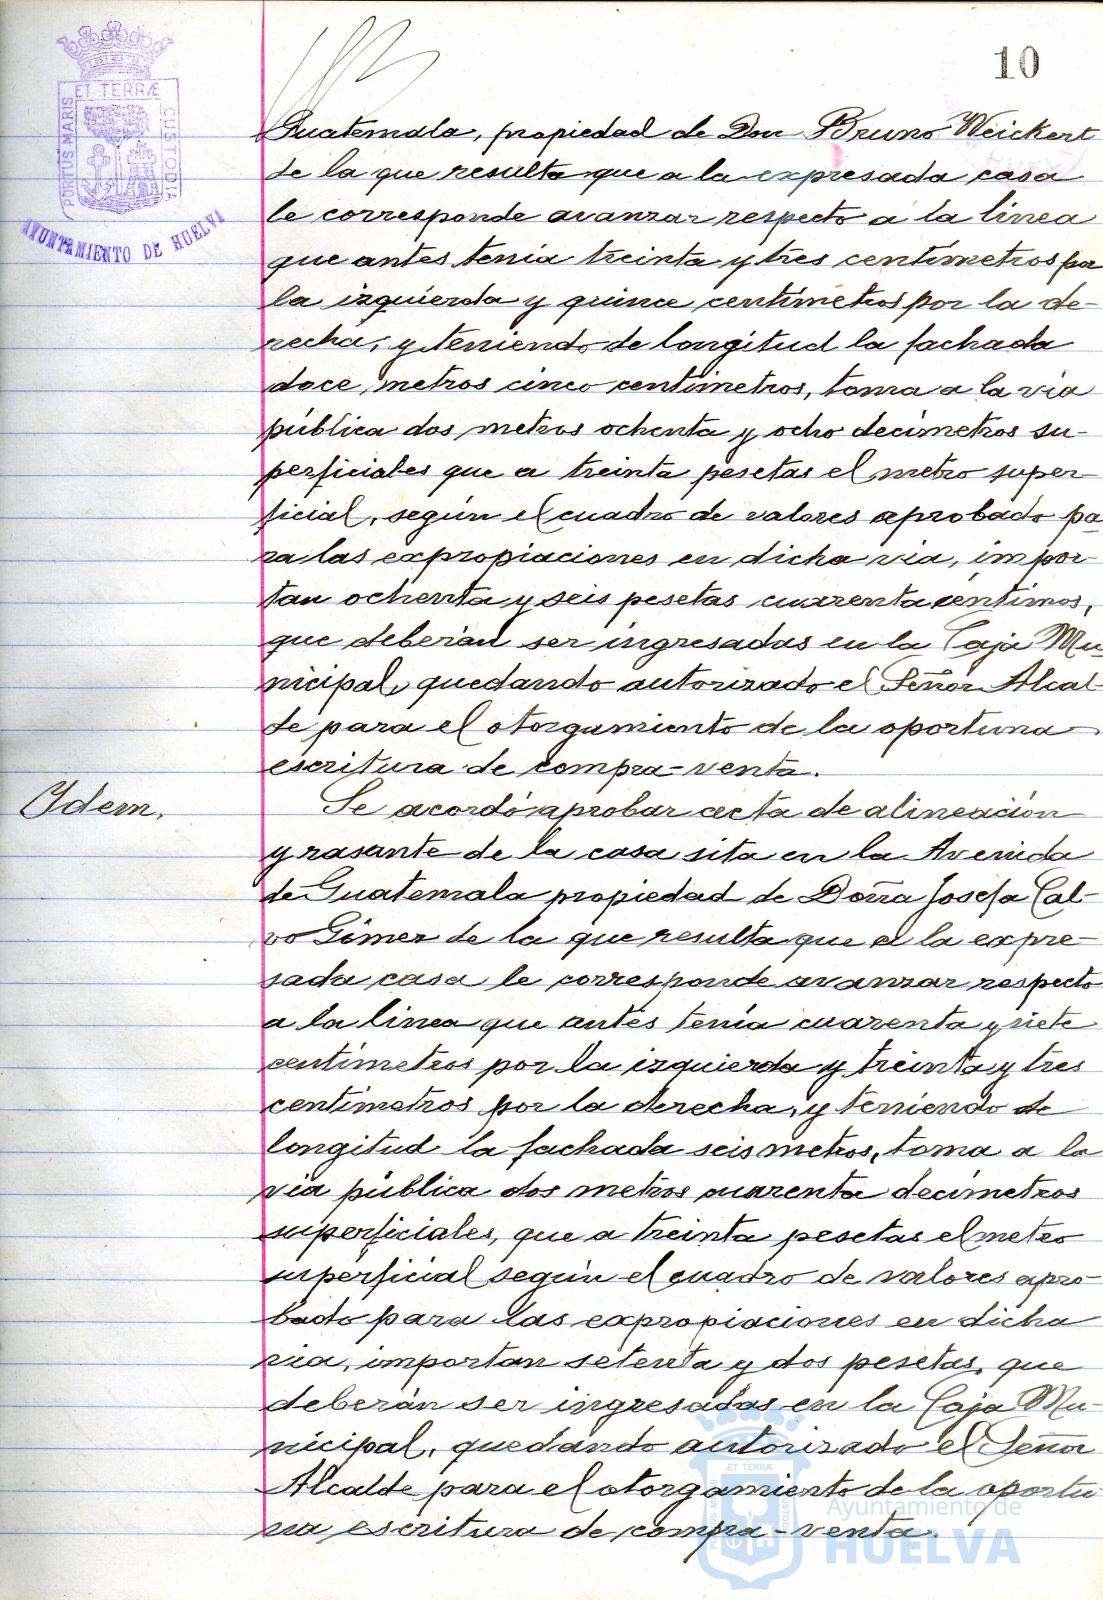 10
ET TERRÆ
PORTUS MARIS
CUSTODIA
AYUNTAMIENTO DE HUELVA
Guatemala, propiedad de Don Bruno Weickert
de la que resulta que a la expresada casa
le corresponde avanzar respecto a la linea
que antes tenia treinta y tres centímetros por
la izquierda y quince centímetros por la de-
recha, y teniendo de longitud la fachada
doce metros cinco centímetros, toma a la via
pública dos metros ochenta y ocho decímetros su-
perficiales que a treinta pesetas el metro super-
ficial, según el cuadro de valores aprobado pa-
ra las expropiaciones en dicha via, impor-
tan ochenta y seis pesetas cuarenta céntimos,
que deberán ser ingresadas en la Caja Mu-
nicipal, quedando autorizado el Señor Alcal-
de para el otorgamiento de la oportuna
escritura de compra-venta.
Idem.
Se acordó aprobar acta de alineación
y rasante de la casa sita en la Avenida
de Guatemala propiedad de Doña Josefa Cal-
vo Gómez de la que resulta que a la expre-
sada casa le corresponde avanzar respecto
a la linea que antes tenía cuarenta y siete
centímetros por la izquierda y treinta y tres
centímetros por la derecha, y teniendo de
longitud la fachada seis metros, toma a la
via pública dos metros cuarenta decímetros
superficiales, que a treinta pesetas el metro
superficial según el cuadro de valores apro-
bado para las expropiaciones en dicha
via, importan setenta y dos pesetas, que
deberán ser ingresadas en la Caja Mu-
nicipal, quedando autorizado el Señor
Alcalde para el otorgamiento de la oportu-
na escritura de compra-venta.
Ayuntamiento de
HUELVA